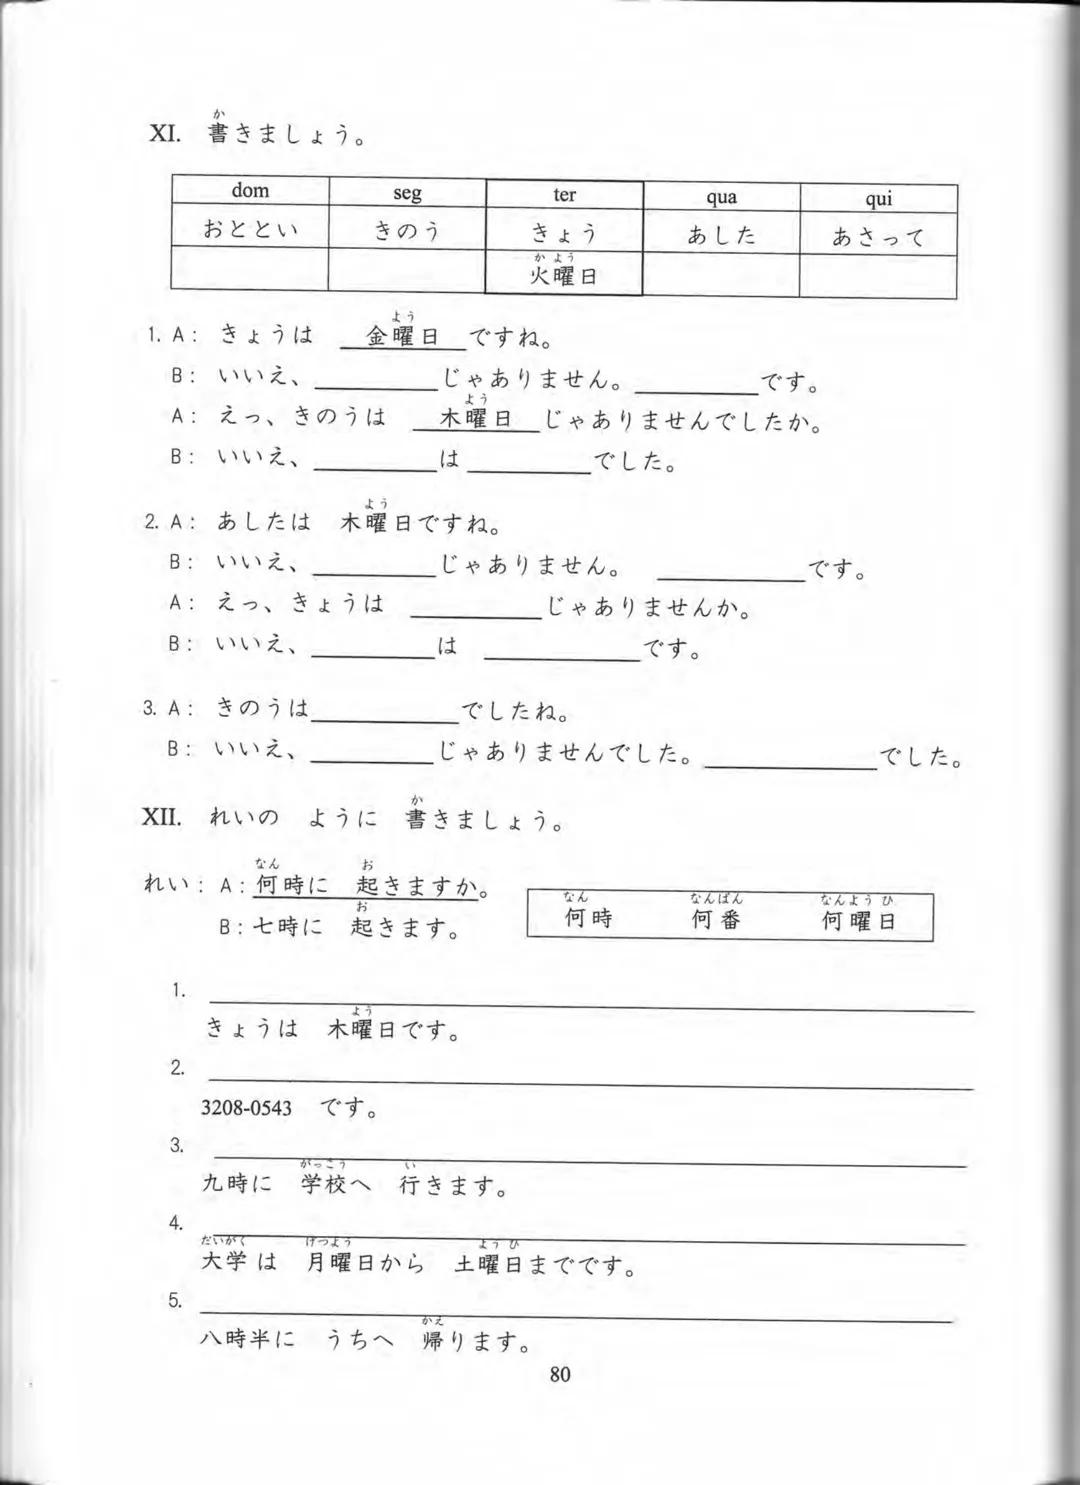 XI. 書きましょう。
dom seg ter qua qui
おととい きのう きょう あした あさって
火曜日
1. A: きょうは 金曜日 ですね。
B: いいえ、__________じゃありません。__________です。
A: えっ、きのうは 木曜日 じゃありませんでしたか。
B: いいえ、__________は __________でした。
2. A: あしたは 木曜日ですね。
B: いいえ、__________じゃありません。 __________です。
A: えっ、きょうは __________じゃありませんか。
B: いいえ、__________は __________です。
3. A: きのうは__________でしたね。
B: いいえ、__________じゃありませんでした。__________でした。
XII. れいの ように 書きましょう。
れい: A: 何時に 起きますか。
B: 七時に 起きます。
何時 何番 何曜日
1.
きょうは 木曜日です。
2.
3208-0543 です。
3.
九時に 学校へ 行きます。
4.
大学は 月曜日から 土曜日までです。
5.
八時半に うちへ 帰ります。
80